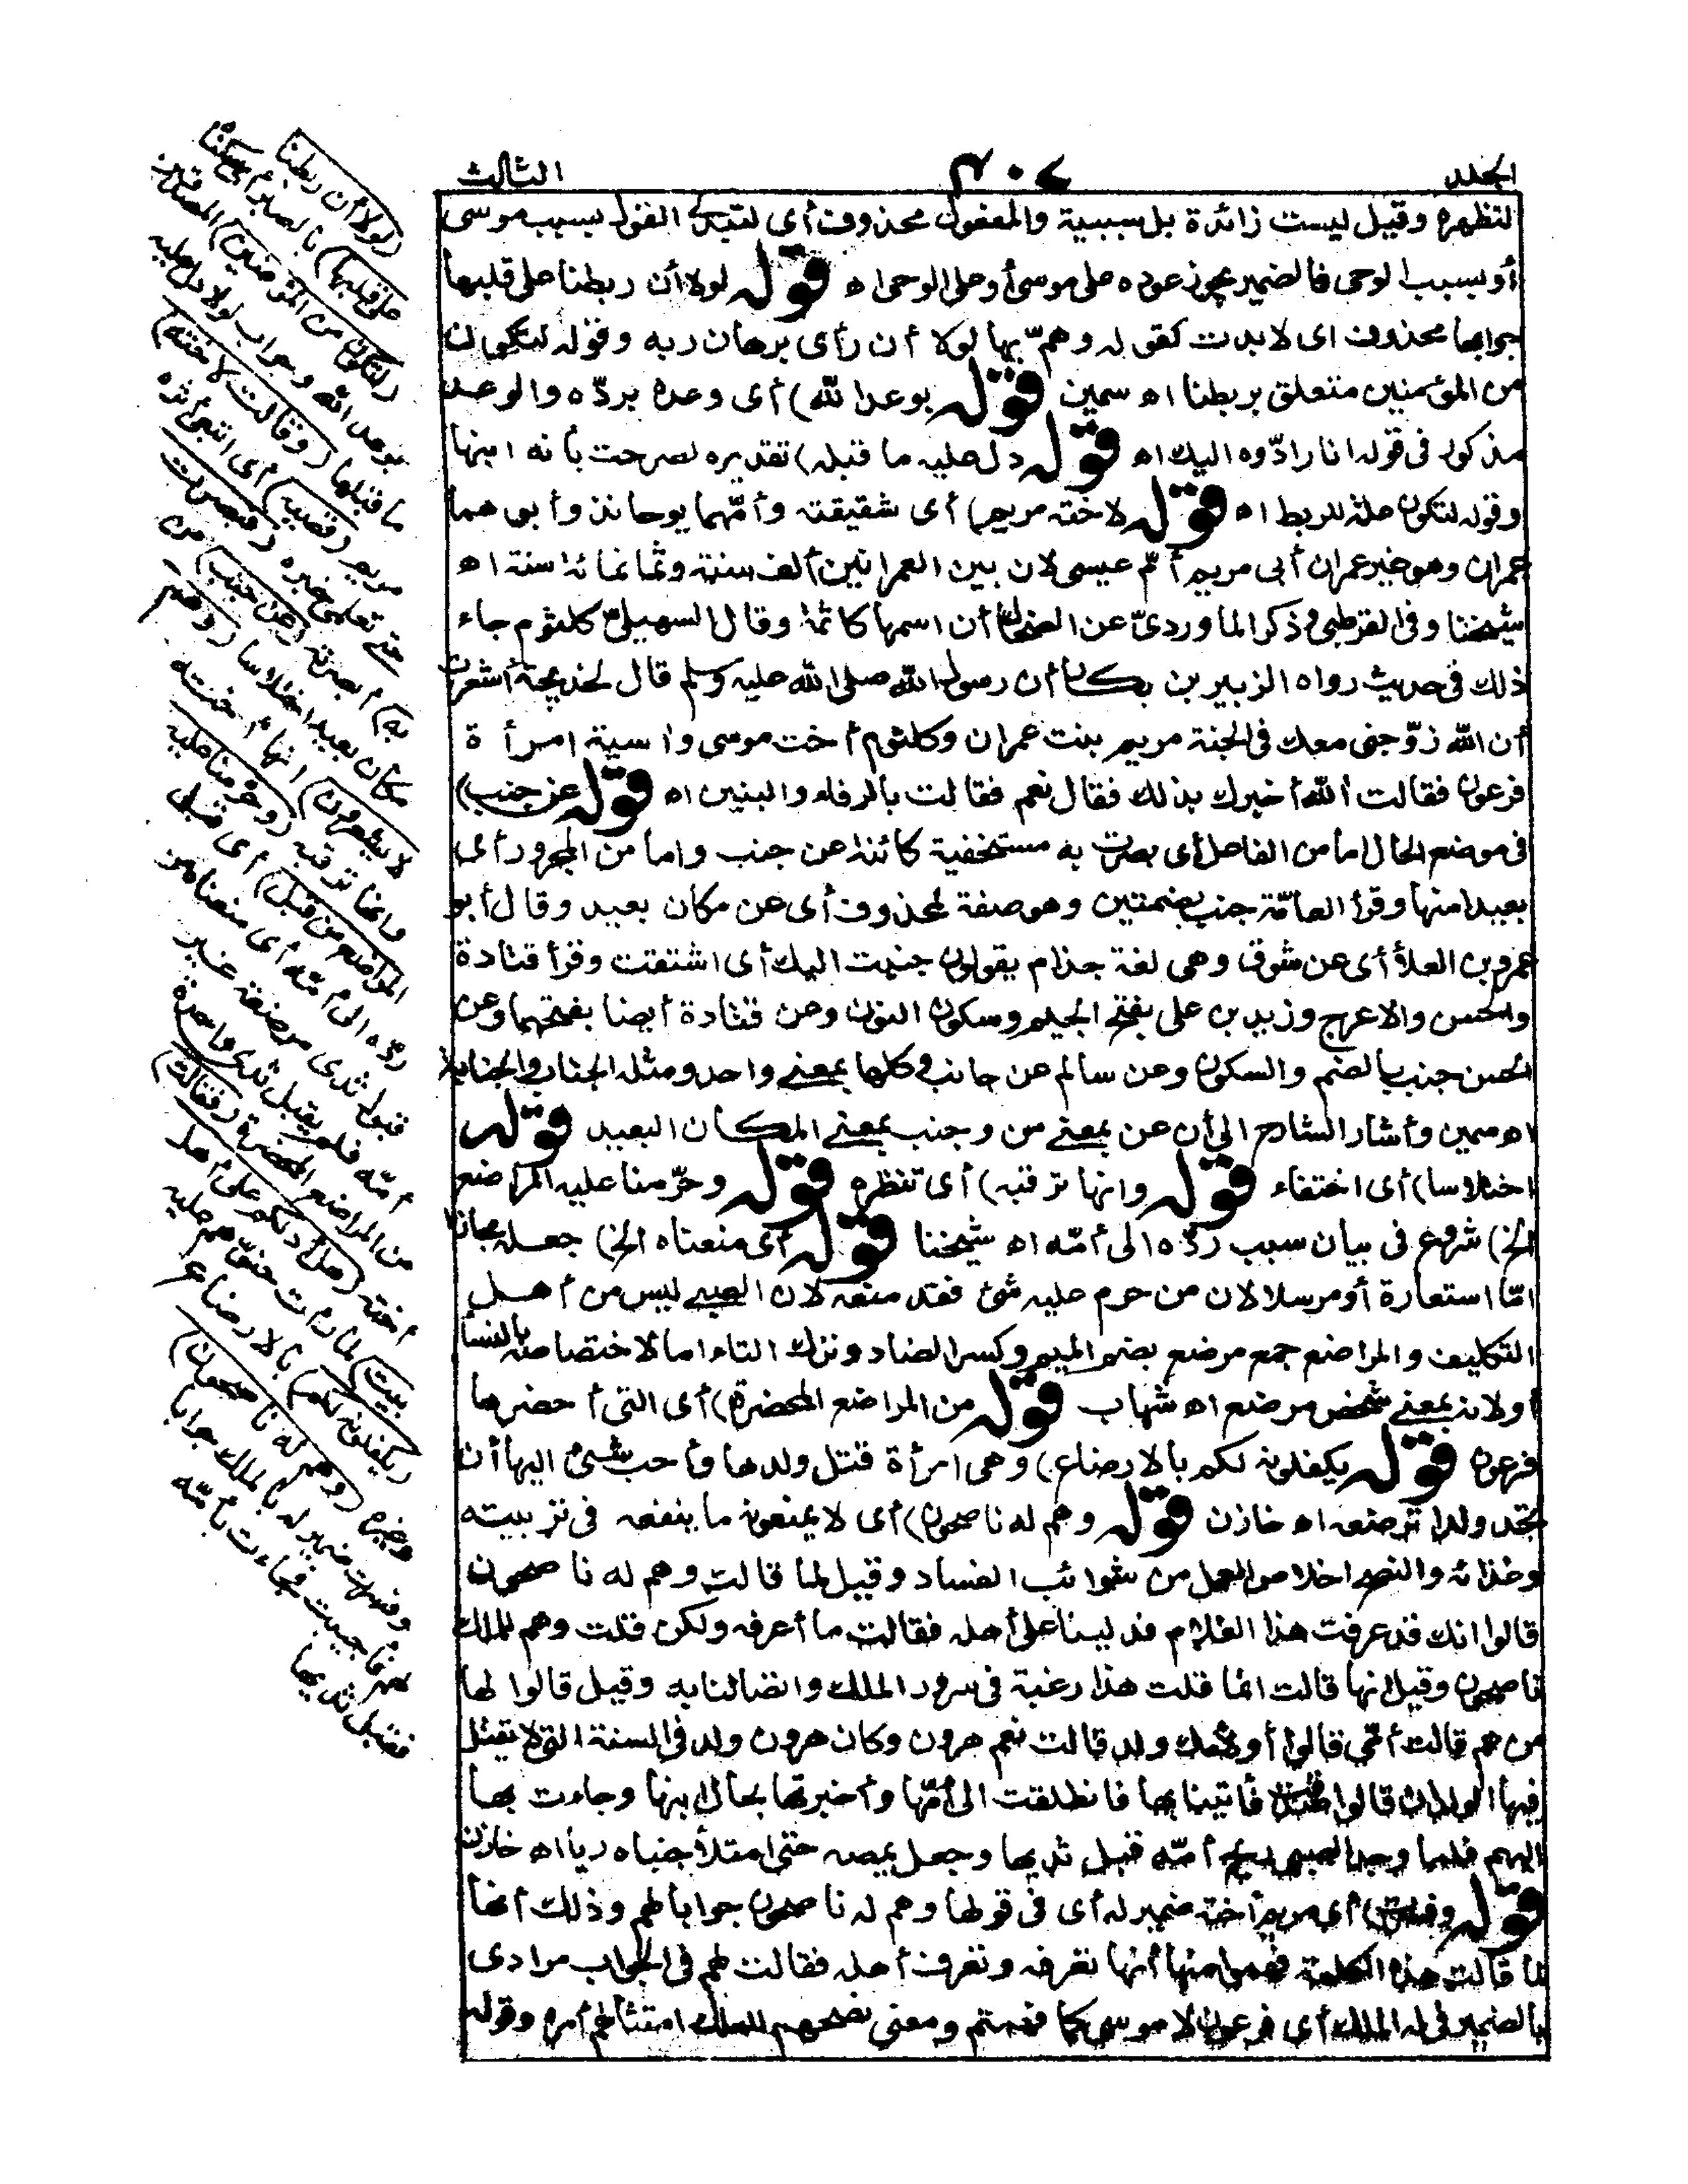 الجلد
٤٠٧
الثالث
لتظهره وقيل ليست زائدة بل سببية والمفعول محذوف أى لتبدى القول بسبب موسى
أو بسبب الوحى فالضمير يجوز عوده على موسى أو على الوحى اه قوله لولا أن ربطنا على قلبها
جوابها محذوف اى لابدت كقوله وهمّ بها لولا أن رأى برهان ربه وقوله لتكون
من المؤمنين متعلق بربطنا اه سمين قوله بوعد الله) أى وعده بردّه والوعد
مذكور فى قوله انا رادّوه اليك اه قوله دل عليه ما قبله) تقديره لصرحت بأنه ابنها
وقوله لتكون علة للربط اه قوله لاخته مريم) أى شقيقته وأمّهما يوحانذ وأبوهما
عمران وهو غير عمران أبى مريم أمّ عيسى لان بين العمرانين ألف سنة وثمانمائة سنة اه
شيخنا وفى القرطبى وذكر الماوردىّ عن الضحاك أن اسمها كلثمة وقال السهيلىّ كلثوم جاء
ذلك فى حديث رواه الزبير بن بكار أن رسول الله صلى الله عليه وسلم قال لخديجة أشعرت
أن الله زوّجنى معك فى الجنة مريم بنت عمران وكلثوم أخت موسى واسية امرأة
فرعون فقالت ألله أخبرك بذلك فقال نعم فقالت بالرفاء والبنين اه قوله عن جنب)
فى موضع الحال امامن الفاعل أى بصرت به مستخفية كائنة عن جنب واما من المجرور أى
بعيدا منها وقرأ العامّة جنب بضمتين وهو صفة لمحذوف أى عن مكان بعيد وقال أبو
عمرو بن العلاء أى عن شوق وهى لغة جذام يقولون جنبت اليك أى اشتقت وقرأ قتادة
والحسن والاعرج وزيد بن على بفتح الجيم وسكون النون وعن قتادة أيضا بفتحهما وعن
الحسن جنب بالضم والسكون وعن سالم عن جانب وكلها بمعنى واحد ومثله الجناب والجنابة
اه سمين وأشار الشارح الى أن عن بمعنى من وجنب بمعنى المكان البعيد قوله
اختلاسا) أى اختفاء قوله وانها ترقبه) أى تنظره قوله وحرّمنا عليه المراضع
الخ) شروع فى بيان سبب ردّه الى أمّه اه شيخنا قوله أى منعناه الخ) جعله مجازا
امّا استعارة أو مرسلا لان من حرم عليه شئ فقد منعه لان الصبى ليس من أهل
التكليف والمراضع جمع مرضع بضم الميم وكسر الضاد وترك التاء اما لاختصاصه بالنساء
أو لانه بمعنى شخص مرضع اه شهاب قوله من المراضع المحضرة) أى التى أحضرها
فرعون قوله يكفلونه لكم بالارضاع) وهى امرأة قتل ولدها وأحب شئ اليها أن
تجد ولدا ترضعه اه خازن قوله وهم له ناصحون) أى لا يمنعونه ما ينفعه فى تربيته
وغذائه والنصح اخلاص العمل من شوائب الفساد وقيل لما قالت وهم له ناصحون
قالوا انك قد عرفت هذا الغلام فدلينا على أهله فقالت ما أعرفه ولكن قلت وهم للملك
ناصحون وقيل انها قالت انما قلت هذا رغبة فى سرور الملك واتصالنا به وقيل قالوا لها
من هم قالت أمى قالوا أو لأمك ولد قالت نعم هرون وكان هرون ولد فى السنة التى لا يقتل
فيها الولدان قالوا فأتينا بها فانطلقت الى أمّها وأخبرتها بحال ابنها وجاءت بها
اليهم فلما وجد الصبى ريح أمّه قبل ثديها وجعل يمصه حتى امتلأ جنباه ريا اه خازن
قوله وفسرت) أى مريم أخته ضمير له أى فى قولها وهم له ناصحون جوابا لهم وذلك أنها
لما قالت هذه الكلمة فهموا منها أنها تعرفه وتعرف أهله فقالت لهم فى الجواب مرادى
بالضمير فى له الملك أى فرعون لا موسى كما فهمتم ومعنى نصحهم للملك امتثالهم أمره وقوله
(لولا أن ربطنا
على قلبها) بالصبر أى سكناه
(لتكون من المؤمنين) المصدقين
بوعد الله وجواب لولا دل عليه
ما قبلها (وقالت لاخته)
مريم (قصيه) أى اتبعى أثره
حتى تعلمى خبره (فبصرت
به) أبصرته (عن جنب) من
مكان بعيد اختلاسا (وهم
لا يشعرون) انها أخته
وانها ترقبه (وحرمنا عليه
المراضع من قبل) أى قبل
ردّه الى أمّه أى منعناه من
قبول ثدى مرضعة غير
أمّه فلم يقبل ثدى واحدة
من المراضع المحضرة (فقالت)
أخته (هل أدلكم على أهل
بيت) لما رأت حنوّهم عليه
(يكفلونه لكم) بالارضاع
وغيره (وهم له ناصحون)
وفسرت ضمير له بالملك جوابا
لهم فأجيبت فجاءت بأمّه
فقبل ثديها